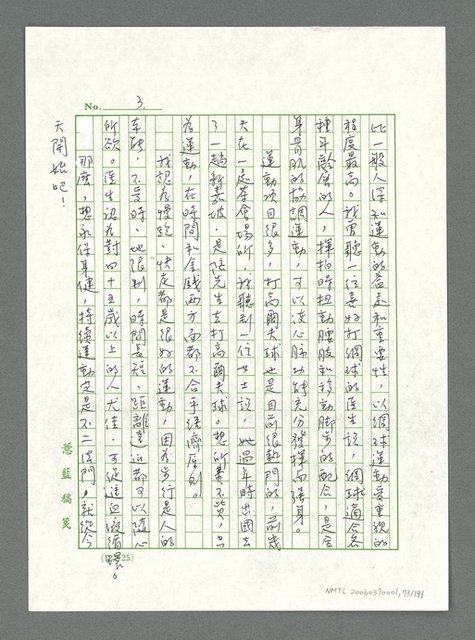 No. 3.
比一般人深知運動的益處和重要性，以網球運動受重視的
程度最高。我曾聽一位喜好打網球的醫生說，網球適合各
種年齡層的人，揮拍時扭動腰肢和移動腳步的配合，是全
身骨肌的協調運動，可以使心肺功能充分發揮而強身。
運動項目很多，打高爾夫球也是目前很熱門的，前幾
天在一處茶會場所，就聽到一位女士說，她過年時出國去
了一趟新嘉坡，是陪先生去打高爾夫球。想所費不貲，只
為運動，在時間和金錢兩方面都不合乎經濟原則。
我想為慢跑、快走都是很好的運動，因為步行是人的
本能，不受時、地限制，時間長短、距離遠近都可以隨心
所欲。醫生認為對四十五歲以上的人尤佳，可促進血液循環。
那麼，想永保身健，持續運動定是不二法門，就從今
天開始吧！
慧藍稿箋
25)
NMTL 20060390001, 73/181